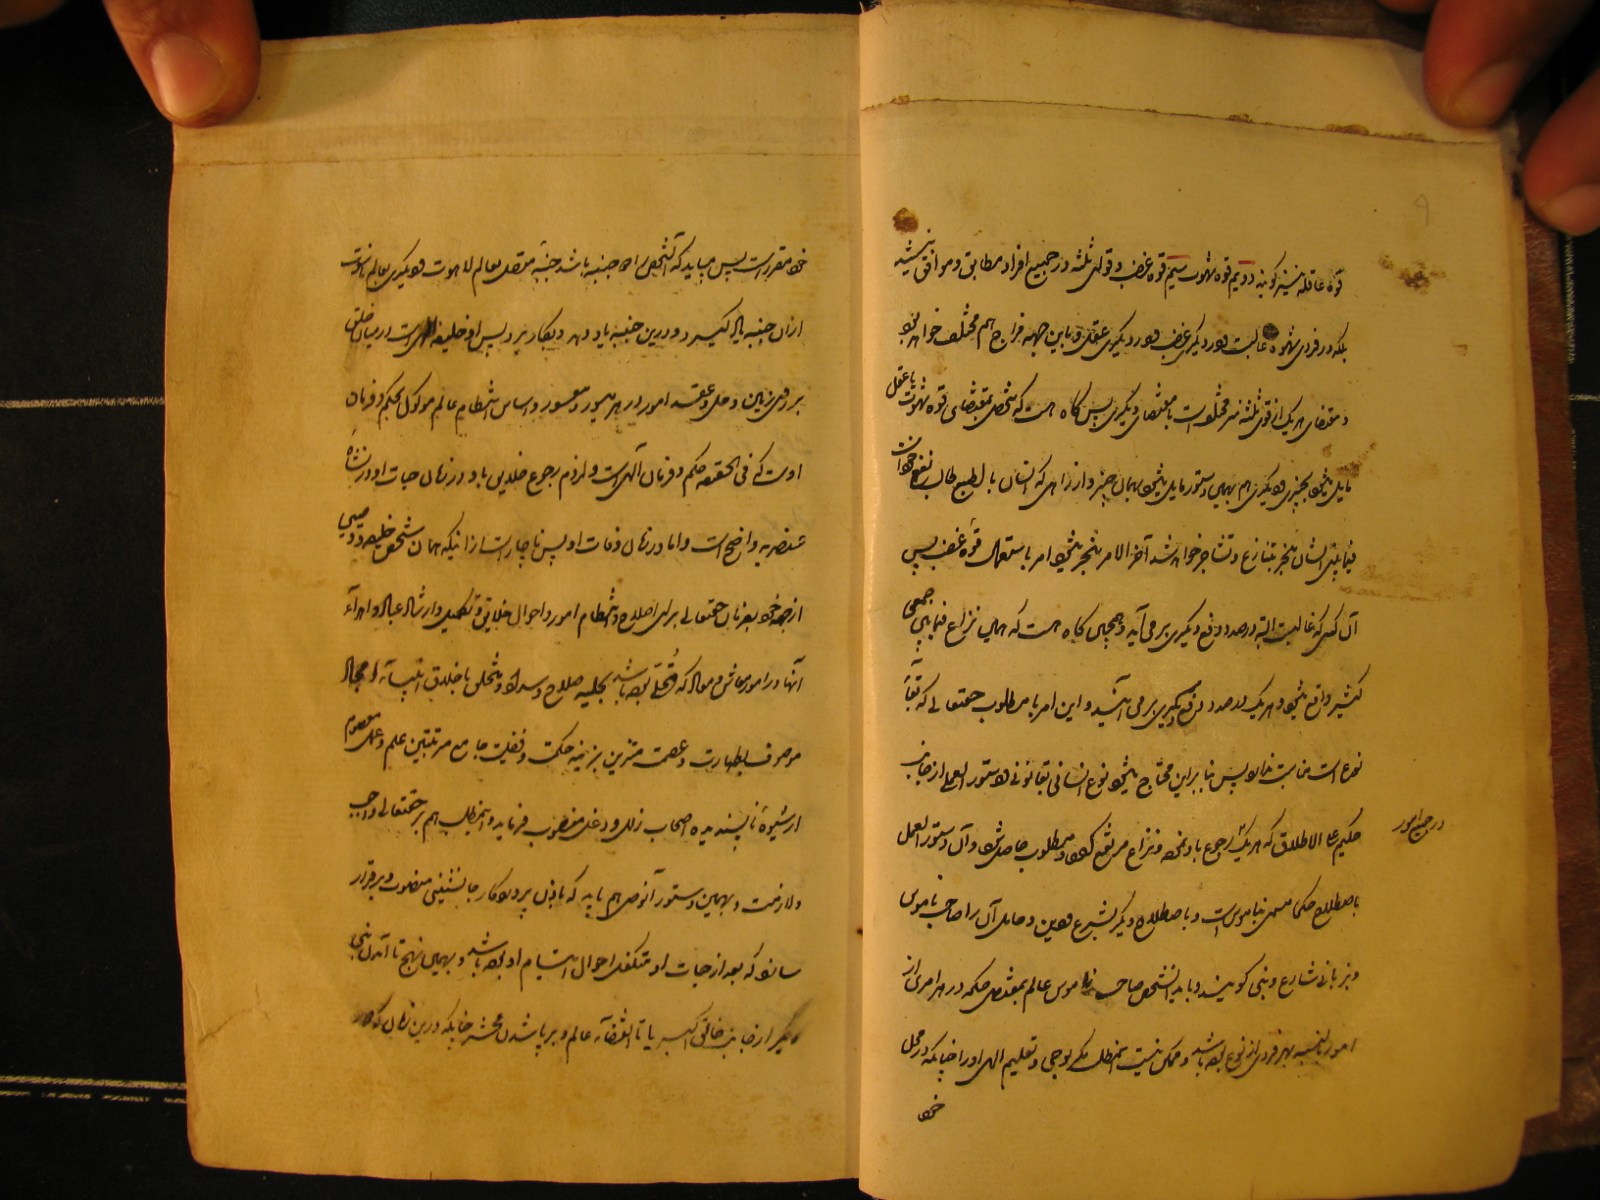 ۹
قوه عاقله ممیزه کویند دویم قوه شهوت سیم قوه غضب و قوای ثلثه در جمیع افراد مطابق و موافق نمیباشد
بلکه در فردی شهوة غالبست و در دیگری غضب و در دیگری عقل و باین جهة مزاج هم مختلف خواهد بود
و مقتضای هر یک از قوی ثلثه نیز مختلفست با مقتضای دیگری پس گاه هست که شخصی بمقتضای قوه شهوت یا عقل
مایل میشود بچیزی و دیگری هم بهمین دستور مایل میشود بهمان چیز و از انجائی که انسان بالطبع طالب نفع خود است
فیما بین ایشان منجر بتنازع و تشاجر خواهد شد آخر الامر منجر میشود امر باستعمال قوه غضب پس
آن کس که غالبست البته در صدد دفع دیگری بر می آید و همچنین گاه هست که همین نزاع فیما بین جمعی
کثیر واقع میشود و هر یک در صدد دفع دیگری بر می آیند و این امر با مطلوب حقتعالی که بقاء
نوع است منافات دارد پس بنا براین محتاج میشود نوع انسانی بقانونی و دستور العملی از جانب
حکیم علی الاطلاق که هر یک رجوع باو نموده و نزاع مرتفع گردد و مطلوب حاصل شود و آن دستور العمل
در جمیع امور
باصطلاح حکما مسمی بناموس است و باصطلاح دیگر بشرع و دین و حامل آن را صاحب ناموس
و بزبانی شارع و نبی گویند و باید آنشخص صاحب ناموس عالم بمقتضی حکمة در هر امری از
امور بالنسبه بهر فردی از نوع بوده باشد و ممکن نیست اینمطلب مگر بوحی و تعلیم الهی او را چنانکه در محل
خود
خود مقرر است پس میباید که آنشخص را دو جنبه باشد جنبه متصل بعالم لاهوت و دیگری بعالم ناسوت
از ان جنبه بالا گیرد و درین جنبه یاد دهد و بکار برد پس او خلیفه الهی است در میان خلق
بر روی زمین و حل و عقد امور در هر میسور و معسور و اساس انتظام عالم موکول بحکم و فرمان
اوست که فی الحقیقه حکم و فرمان الهی است و لزوم رجوع خلایق باو در زمان حیات او در نشاه
عنصریه واضح است و اما در زمان وفات او پس ناچار است از انیکه همان شخص خلیفه و وصیی
از جهة خود بفرمان حقتعالی برای اصلاح و انتظام امور و احوال خلایق و تکمیل و ارشاد عباد و اهداء
آنها در امور معاش و معاد که متحلی بوده باشد بحلیه صلاح و سداد و متخلق باخلاق انبیاء امجاد
موصوف بطهارت و عصمت متزین بزینه حکمت و فضیلت جامع مرتبتین علم و عمل معصوم
از شیوهٔ ناپسندیده اصحاب زلل و دغل منصوب فرماید و اینمطلب هم بر حقتعالی واجب
و لازمست و بهمین دستور آنوصی هم باید که باذن پروردکار جانشینی منصوب و برقرار
سازد که بعد از حیات او متکفل احوال ایتام او بوده باشد و بهمین نهج تا آمدن نبی
دیگر از جانب خالق اکبر یا تا انقضاء عالم و برپا شدن محشر چنانکه درین زمان که